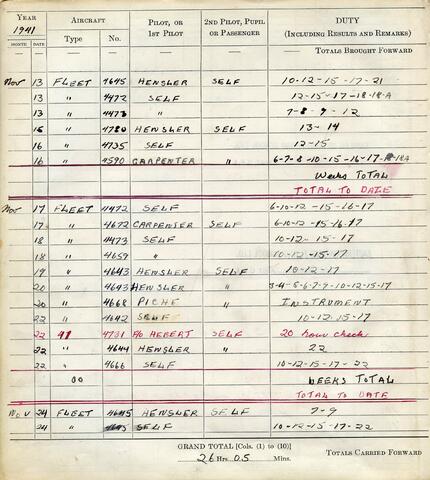 YEAR AIRCRAFT PILOT, OR 2ND PILOT, PUPIL DUTY
1941 1ST PILOT OR PASSENGER (INCLUDING RESULTS AND REMARKS)
MONTH DATE Type No.
TOTALS BROUGHT FORWARD
Nov 13 FLEET 4645 HENSLER SELF 10-12-15-17-21
13 " 4472 SELF 12-15-17-18-18A
13 " 4473 " 7-8-9-12
15 " 4780 HENSLER SELF 13-14
16 " 4735 SELF 12-15
16 " 4590 CARPENTER " 6-7-8-10-15-16-17-18A
Weeks TOTAL
TOTAL TO DATE
Nov 17 FLEET 4472 SELF 6-10-12-15-16-17
17 " 4672 CARPENTER SELF 6-10-12-15-16-17
18 " 4473 SELF 10-12-15-17
18 " 4659 " 10-12-15-17
19 " 4643 HENSLER SELF 10-12-17
20 " 4643 HENSLER " 3-4-5-6-7-9-10-12-15-17
20 " 4668 PICHE " INSTRUMENT
22 " 4642 SELF 10-12-15-17
22 " 4731 F/O HEBERT SELF 20 hour check
22 " 4644 HENSLER " 22
22 " 4666 SELF 10-12-15-17-22
WEEKS TOTAL
TOTAL TO DATE
Nov 24 FLEET 4645 HENSLER SELF 7-9
24 " 4645 SELF 10-12-15-17-22
GRAND TOTAL [Cols. (1) to (10)]
26 Hrs. 05 Mins.
TOTALS CARRIED FORWARD